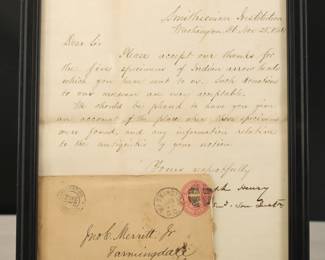 Smithsonian Institution
Washington Nov. 25
Dear Sir
Please accept our thanks for
the five specimens of Indian arrow heads
which you have sent to us. Such donations
to our museum are very acceptable.
We should be pleased to have you give
an account of the place where these specimens
were found, and any information relative
to the antiquities of your nation.
Yours respectfully
Henry
Jno. C. Merritt, Jr
Farmingdale